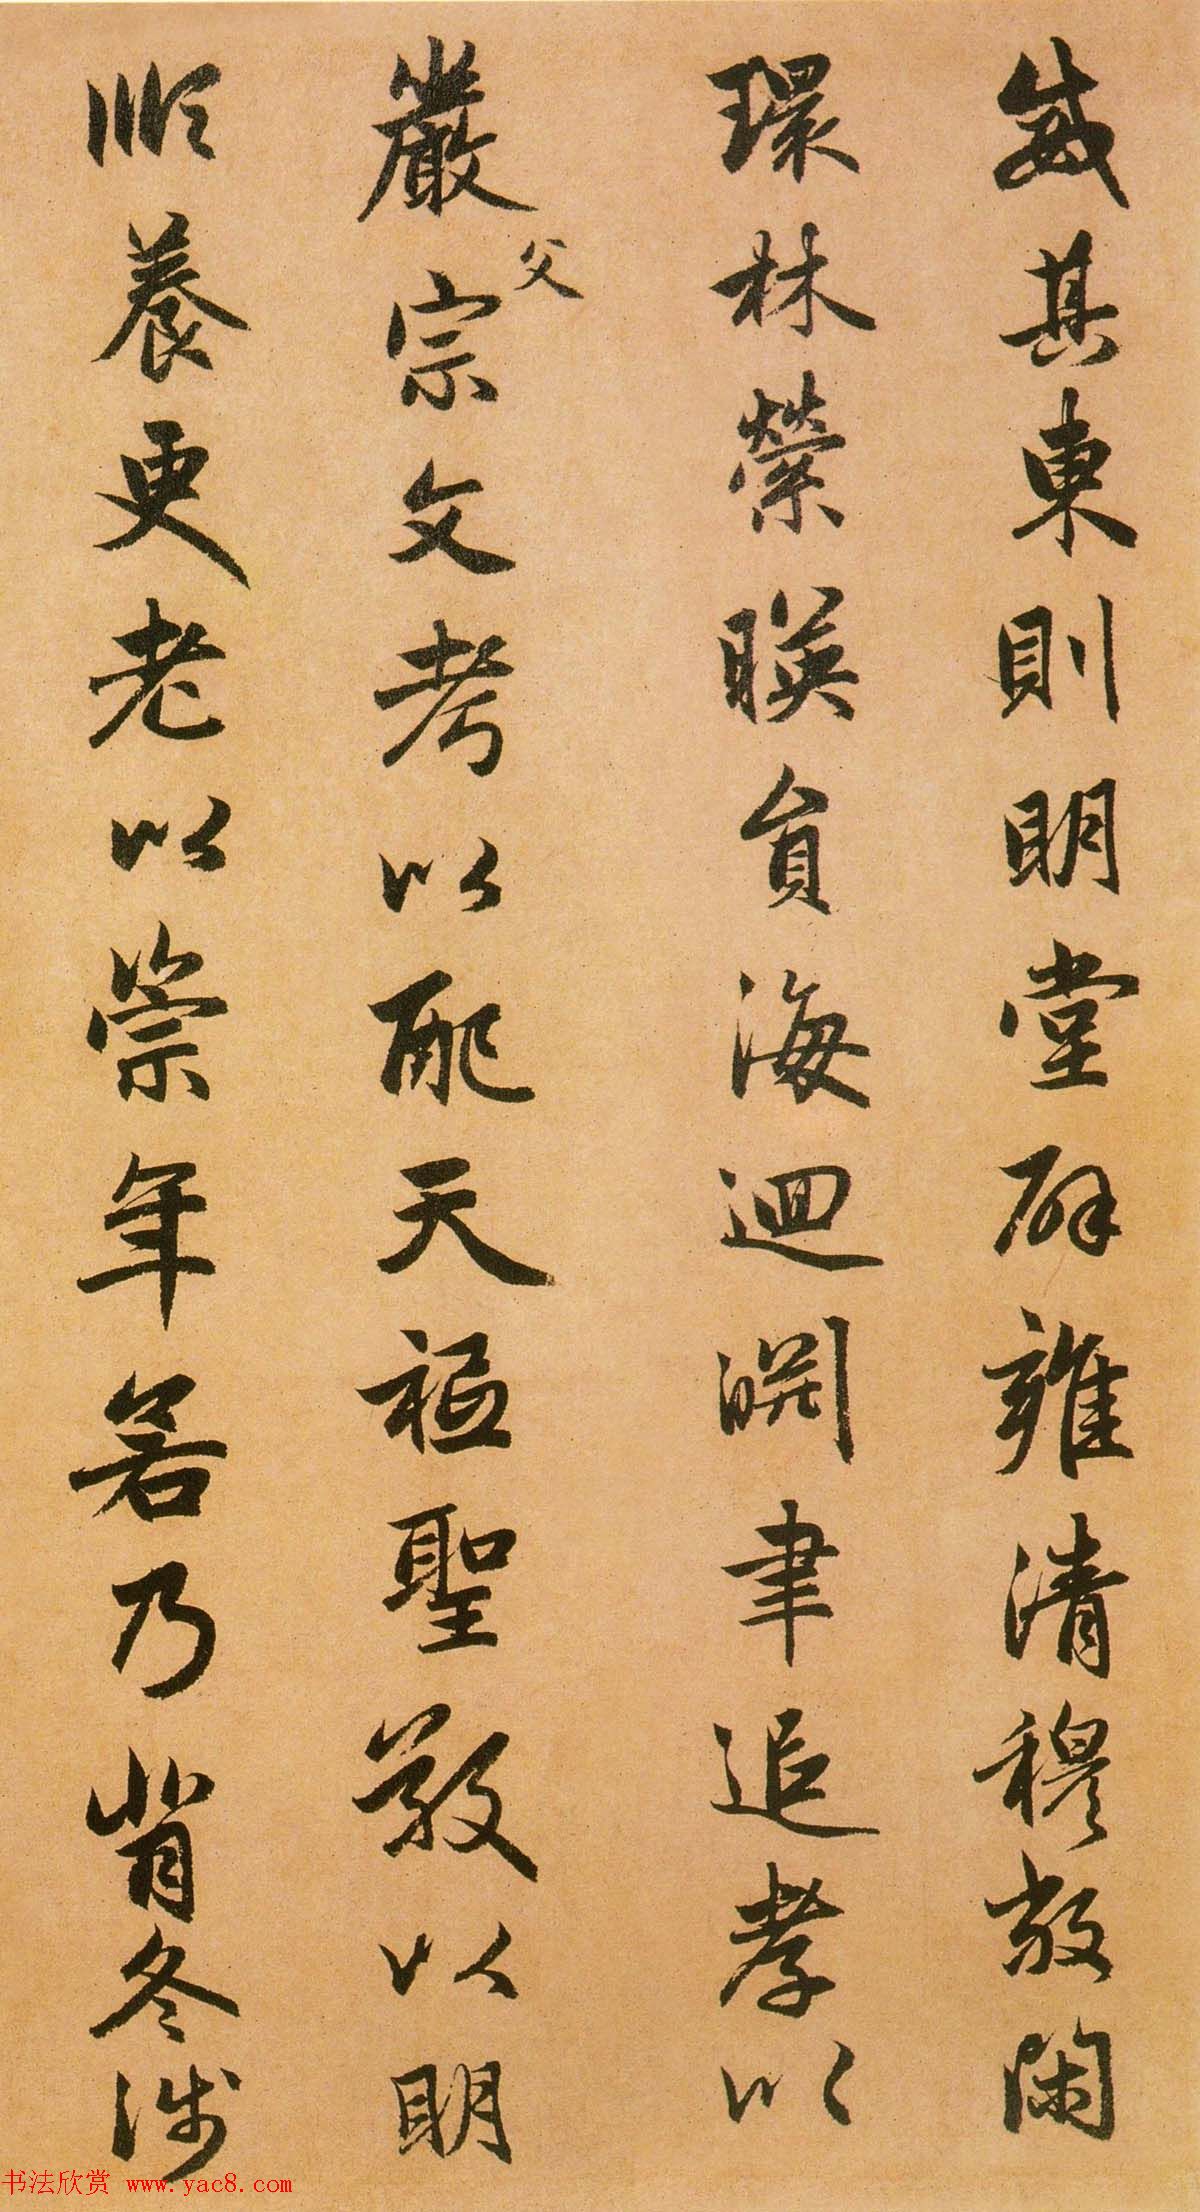 盛其東則明堂辟雍清穆敞閑
環林縈暎員海迴淵聿追孝以
嚴父宗文考以配天祗聖敬以明
順養更老以崇年若乃背冬涉
书法欣赏 www.yac8.com